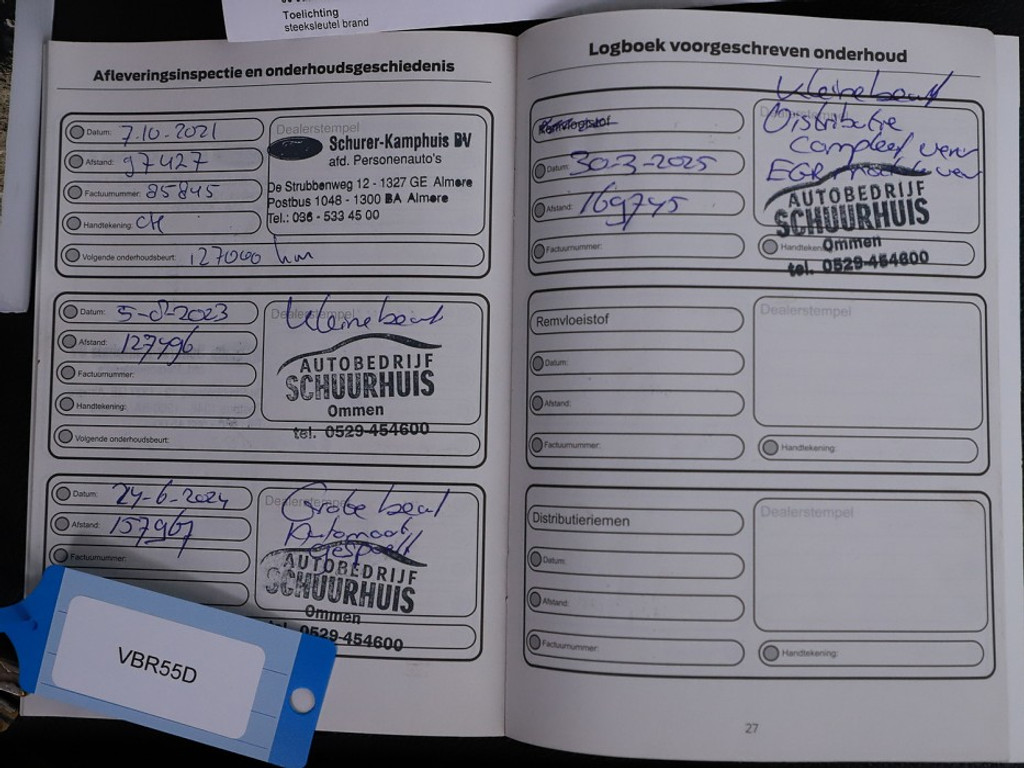 Toelichting
steeksleutel brand
Afleveringsinspectie en onderhoudsgeschiedenis
Datum: 7-10-2021
Afstand: 97427
Factuurnummer: 85845
Handtekening:
Volgende onderhoudsbeurt: 127000 km
Dealerstempel
Schurer-Kamphuis BV
afd. Personenauto's
De Strubbenweg 12 - 1327 GE Almere
Postbus 1048 - 1300 BA Almere
Tel.: 036 - 533 45 00
Datum: 5-8-2023
Afstand: 127496
Factuurnummer:
Handtekening:
Volgende onderhoudsbeurt:
Dealerstempel
Kleine beurt
AUTOBEDRIJF
SCHUURHUIS
Ommen
tel. 0529-454600
Datum: 24-6-2024
Afstand: 157967
Factuurnummer:
Dealerstempel
Grote beurt
Automaat
gespoeld
AUTOBEDRIJF
SCHUURHUIS
Ommen
tel. 0529-454600
VBR55D
Logboek voorgeschreven onderhoud
Remvloeistof
Datum: 30-3-2025
Afstand: 169745
Factuurnummer:
Kleine beurt
Distributie
compleet verv
EGR verv
AUTOBEDRIJF
SCHUURHUIS
Handteken
Ommen
tel. 0529-454600
Remvloeistof
Datum:
Afstand:
Factuurnummer:
Dealerstempel
Handtekening:
Distributieriemen
Datum:
Afstand:
Factuurnummer:
Dealerstempel
Handtekening:
27